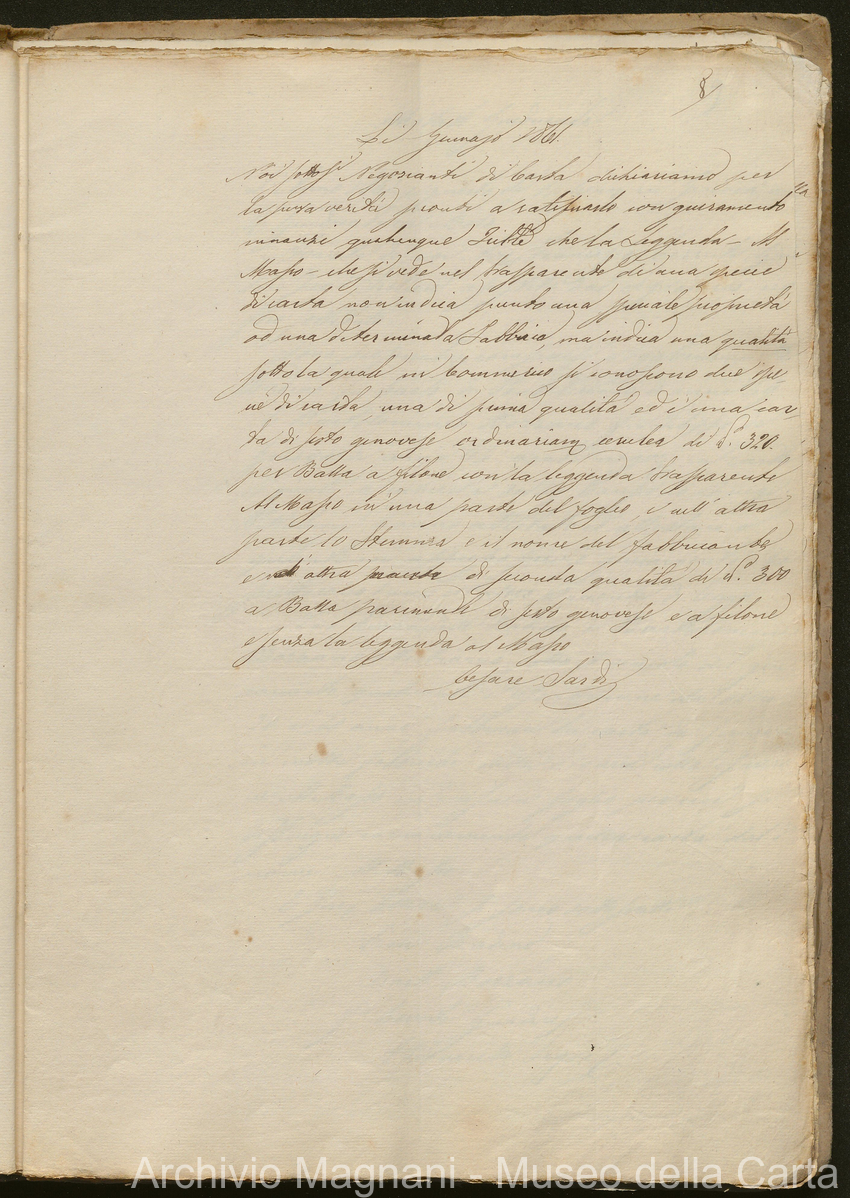 8
Li Gennajo 1861.
Noi sotti Negozianti di Carta dichiariamo per
la pura verità pronti a ratificarlo con guiramento
innanzi qualunque che la Leggenda - Al
Masso - che si vede nel trasparente di una specie
di carta non indica punto una speciale proprietà
od una determinata Fabbrica, ma indica una qualità
sotto la quale in Commercio si conoscono due spe
cie di carta una di prima qualità ed è una car
ta di sesto genovese ordinariam cerulea di 320.
per Balla a filone con la leggenda trasparente
Al Masso in una parte del foglio, e nell'altra
parte lo Stemma e il nome del fabbricante
e l'altra di seconda qualità di 300
a Balla parimente di sesto genovese e a filone
e senza la leggenda al Masso
Cesare Sardi
Archivio Magnani - Museo della Carta